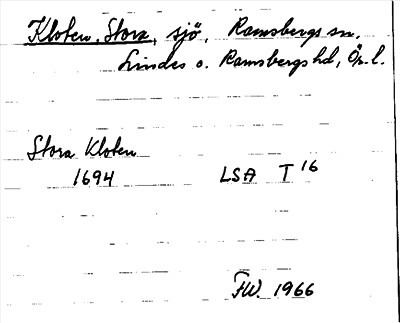 Kloten, Stora, sjö, Ramsbergs sn.
Lindes o. Ramsbergs hd, Ör. l.
Stora Kloten
1694 LSA T 16
FW. 1966